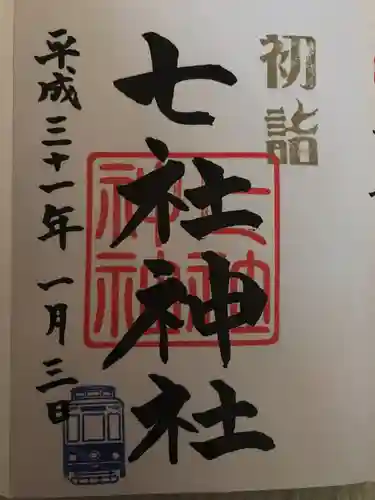 初詣
七社神社
平成三十一年一月三日
七社
神社